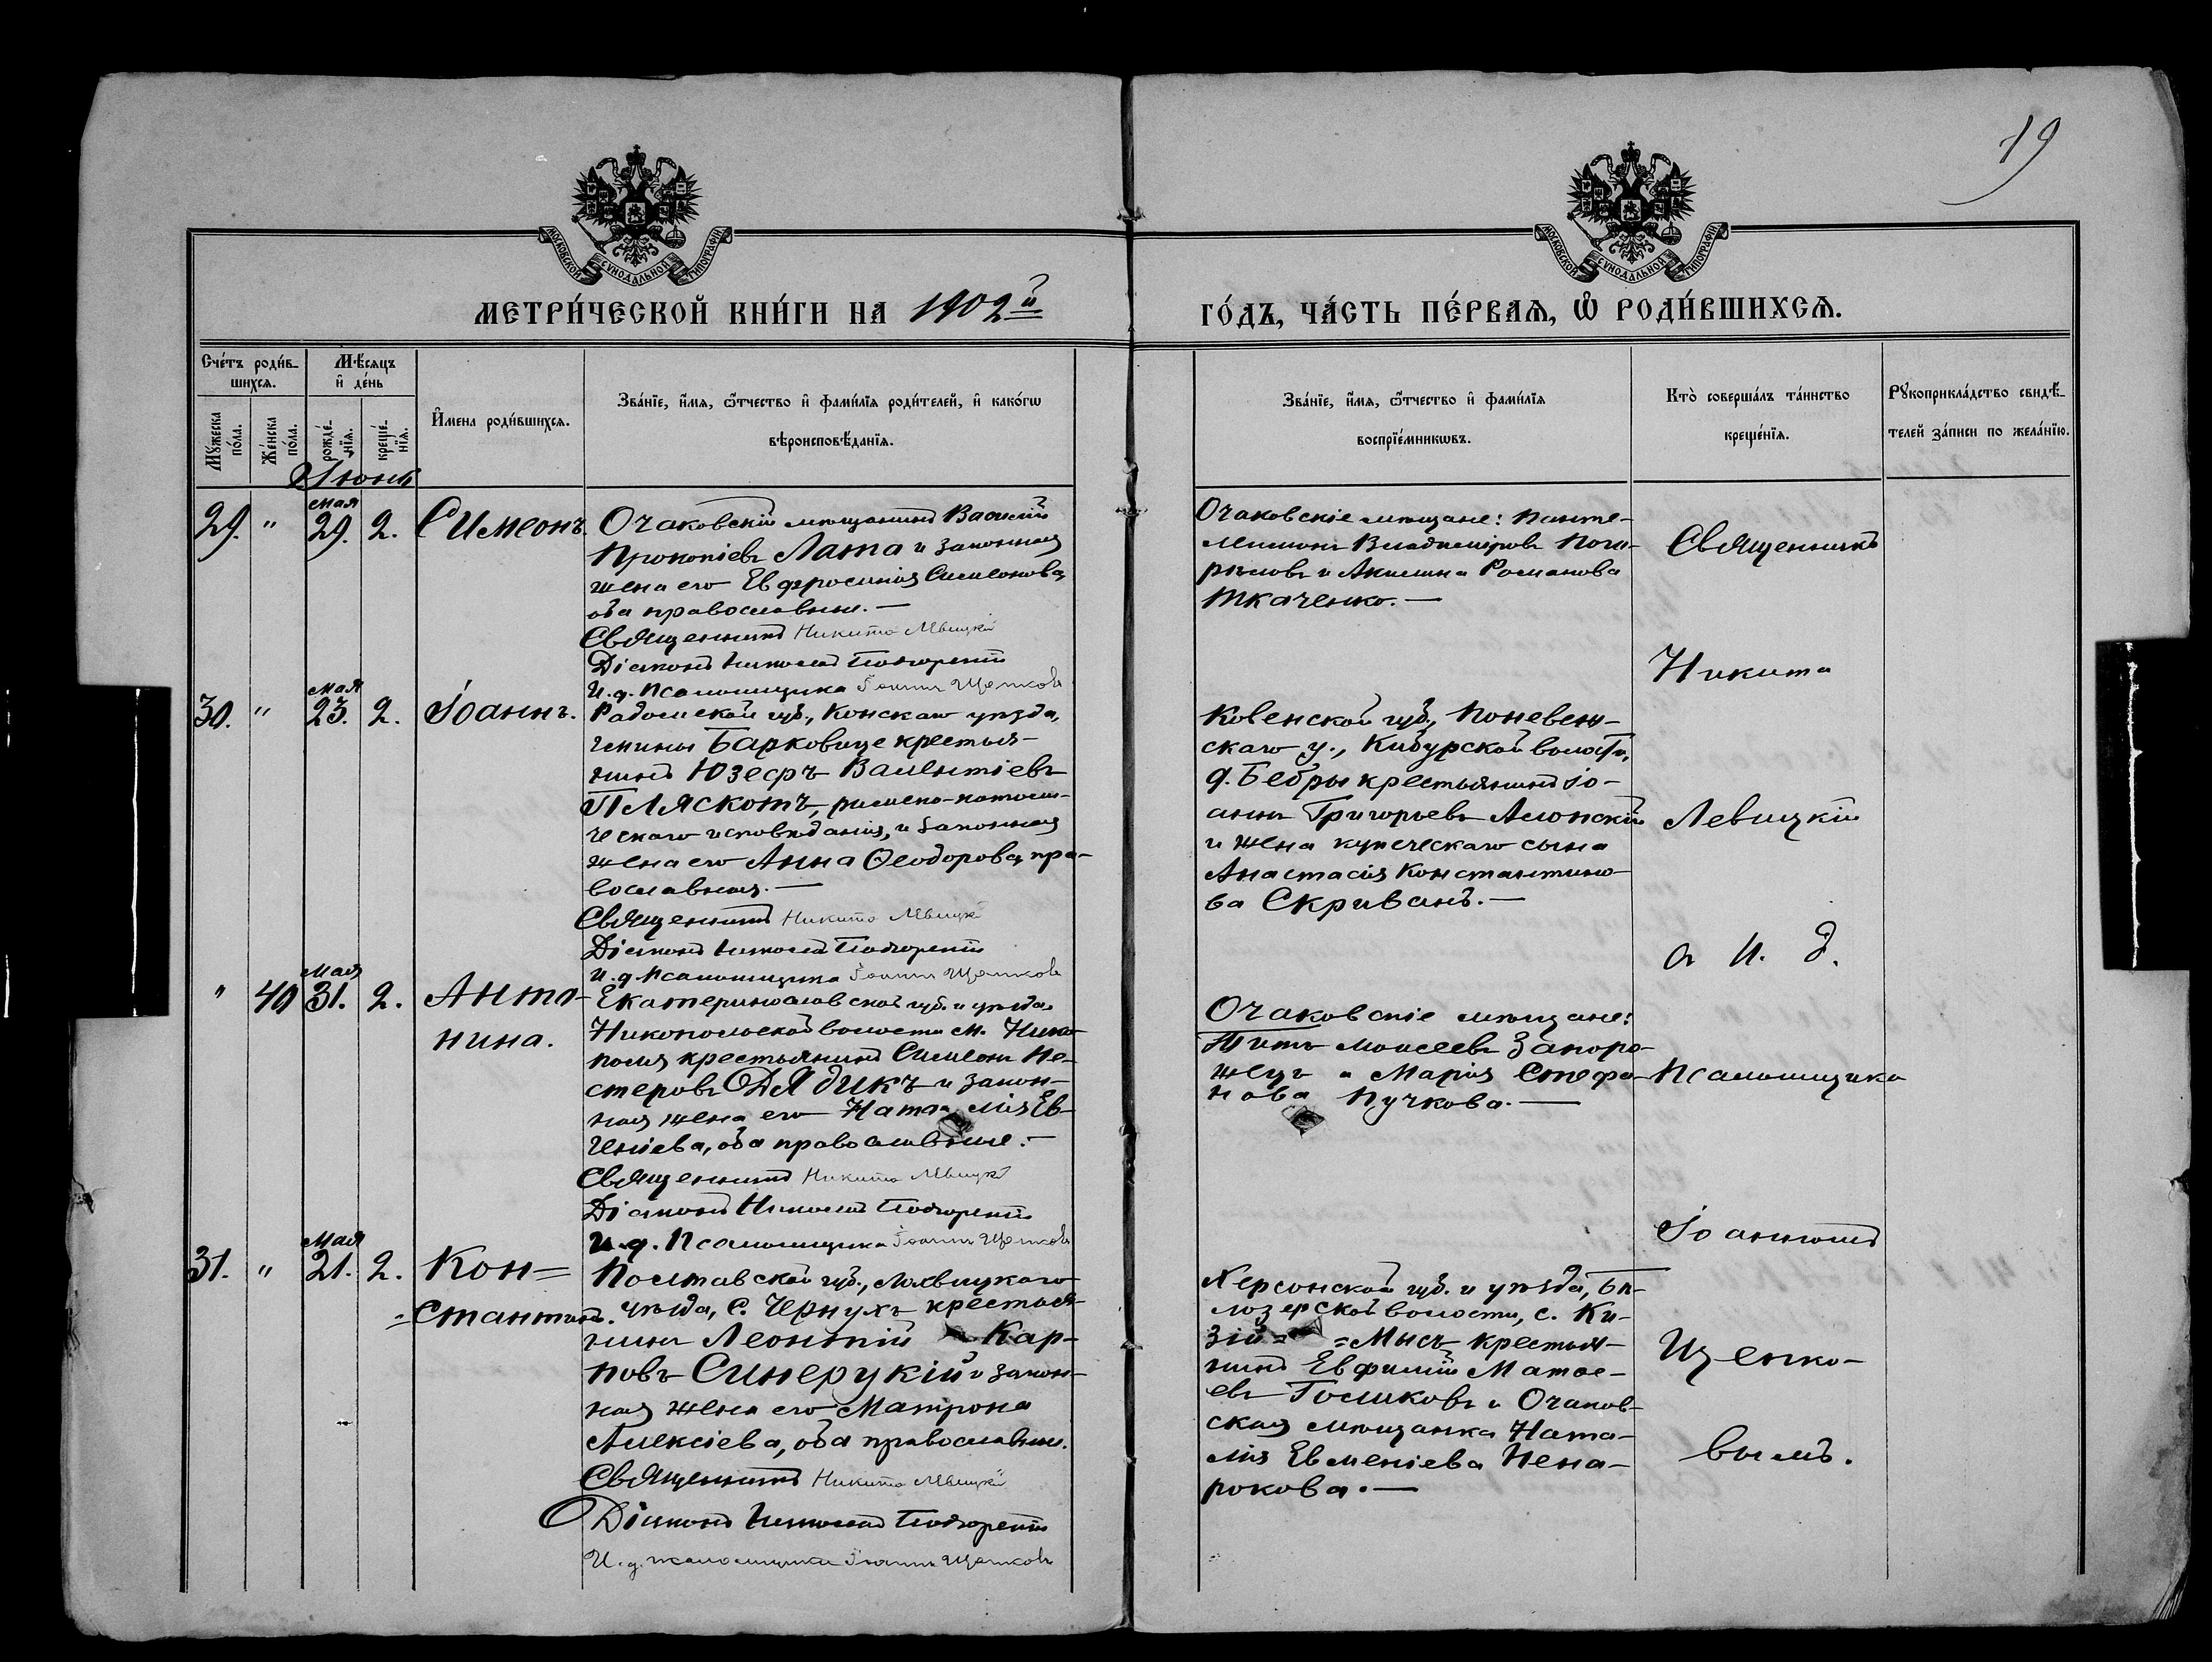 19
МОСКОВСКОЙ СѴНОДАЛЬНОЙ ТИПОГРАФІИ
МОСКОВСКОЙ СѴНОДАЛЬНОЙ ТИПОГРАФІИ
МЕТРИ́ЧЕСКОЙ КНИ́ГИ НА 1902й
ГО́ДЪ, ЧА́СТЬ ПЕ́РВАѦ, Ѽ РОДИ́ВШИХСѦ.
Сче́тъ роди́в-
шихсѧ.
Мꙋ́жеска
по́ла.
Же́нска
по́ла.
Мѣ́сѧцъ
и҆ де́нь
рожде́-
нїѧ.
креще́-
нїѧ.
И҆мена роди́вшихсѧ.
Зва́нїе, и҆́мѧ, ѻ҆́тчество и҆ фами́лїѧ роди́телей, и҆ како́гѡ
вѣроисповѣ́данїѧ.
Зва́нїе, и҆́мѧ, ѻ҆́тчество и҆ фами́лїѧ
воспрїе́мникѡвъ.
Кто̀ соверша́лъ та́инство
креще́нїѧ.
Рꙋкоприкла́дство свидѣ́-
телей за́писи по жела́нїю.
Июнь
29. " Мая 29. 2. Симеонъ.
Очаковскій мѣщанинъ Василій
Прокопіевъ Лата и законная
жена его Евфросинія Симеонова,
оба православные. —
Священникъ Никита Левицкій
Діаконъ Николай
И. д. Псаломщика Іоаннъ Щенковъ
Очаковскіе мѣщане: Панте-
леимонъ Владиміровъ
и Акилина Романова
Ткаченко. —
30. " Мая 23. 2. Іоаннъ.
Радомской губ., Конскаго уѣзда,
гмины Барковице крестья-
нинъ Юзефъ Валентіевъ
Пляскотъ, римско-католи-
ческаго исповѣданія, и законная
жена его Анна Ѳеодорова, пра-
вославная. —
Священникъ Никита Левицкій
Діаконъ Николай
И. д. Псаломщика Іоаннъ Щенковъ
Ковенской губ., Поневеж-
скаго у., Кибурской волости,
д. Бебры крестьянинъ Іо-
аннъ Григорьевъ Ялонскій
и жена купеческаго сына
Анастасія Константино-
ва Скривань. —
" 40 Мая 31. 2. Анто-
нина.
Екатеринославской губ. и уѣзда,
Никопольской волости м. Нико-
поля крестьянинъ Симеонъ Не-
стеровъ Дядикъ и закон-
ная жена его Наталія Ев-
геніева, оба православные. —
Священникъ Никита Левицкій
Діаконъ Николай
И. д. Псаломщика Іоаннъ Щенковъ
Очаковскіе мѣщане:
Титъ Моисеевъ Запоро-
жецъ и Марія Стефа-
нова Пучкова. —
31. " Мая 21. 2. Кон=
=стантинъ.
Полтавской губ., Лохвицкаго
уѣзда, с. Чернухъ крестья-
нинъ Леонтій Кар-
повъ Синерукій и закон-
ная жена его Матрона
Алексіева, оба православные.
Священникъ Никита Левицкій
Діаконъ Николай
И. д. псаломщика Іоаннъ Щенковъ
Херсонской губ. и уѣзда, Бѣ-
лозерской волости, с. Ки-
зій= =Мысъ крестья-
нинъ Евфимій Матѳе-
евъ Голиковъ и Очаков-
ская мѣщанка Ната-
лія Евменіева Нена-
рокова. —
Священникъ
Никита
Левицкій
а И. д.
Псаломщика
Іоанномъ
Щенко-
вымъ.